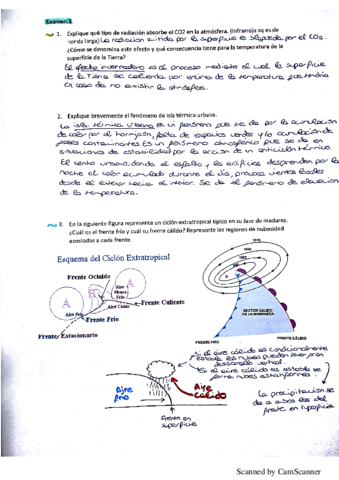 Examen 1
1. Explique qué tipo de radiación absorbe el CO2 en la atmósfera. (Infrarroja xq es de
onda larga) La radiación emitida por la superficie es absorbida por el CO2.
¿Cómo se denomina este efecto y qué consecuencia tiene para la temperatura de la
superficie de la Tierra?
El efecto invernadero es el proceso mediante el cual la superficie
de la Tierra se calienta por encima de la temperatura que tendría
en caso de no existir la atmósfera.
2. Explique brevemente el fenómeno de isla térmica urbana.
La isla térmica urbana es un fenómeno que se da por la acumulación
de calor por el hormigón, falta de espacios verdes y/o acumulación de
gases contaminantes. Es un fenómeno atmosférico que se da en
situaciones de estabilidad por la acción de un anticiclón térmico.
El centro urbano, donde el asfalto y los edificios desprenden por la
noche el calor acumulado durante el día, provoca vientos locales
desde el exterior hacia el interior. Se da el fenómeno de elevación
de la temperatura.
3. En la siguiente figura representa un ciclón extratropical típico en su fase de madurez.
¿Cuál es el frente frío y cuál su frente cálido? Represente las regiones de nubosidad
asociadas a cada frente.
Esquema del Ciclón Extratropical
Frente Ocluido
A
Aire
Frío
Aire Frío
Frente Cálido
Frente Frío
A
Frente Estacionario
SECTOR CÁLIDO
DE LA BORRASCA
FRENTE FRÍO
FRENTE CÁLIDO
Si el aire cálido es condicionalmente
inestable las nubes pueden tener gran
desarrollo vertical.
Si el aire cálido es estable se
forman nubes estratiformes.
Aire
frío
Aire
cálido
Frente en
superficie
la precipitación se
da a ambos lados del
frente en superficie
Scanned by CamScanner